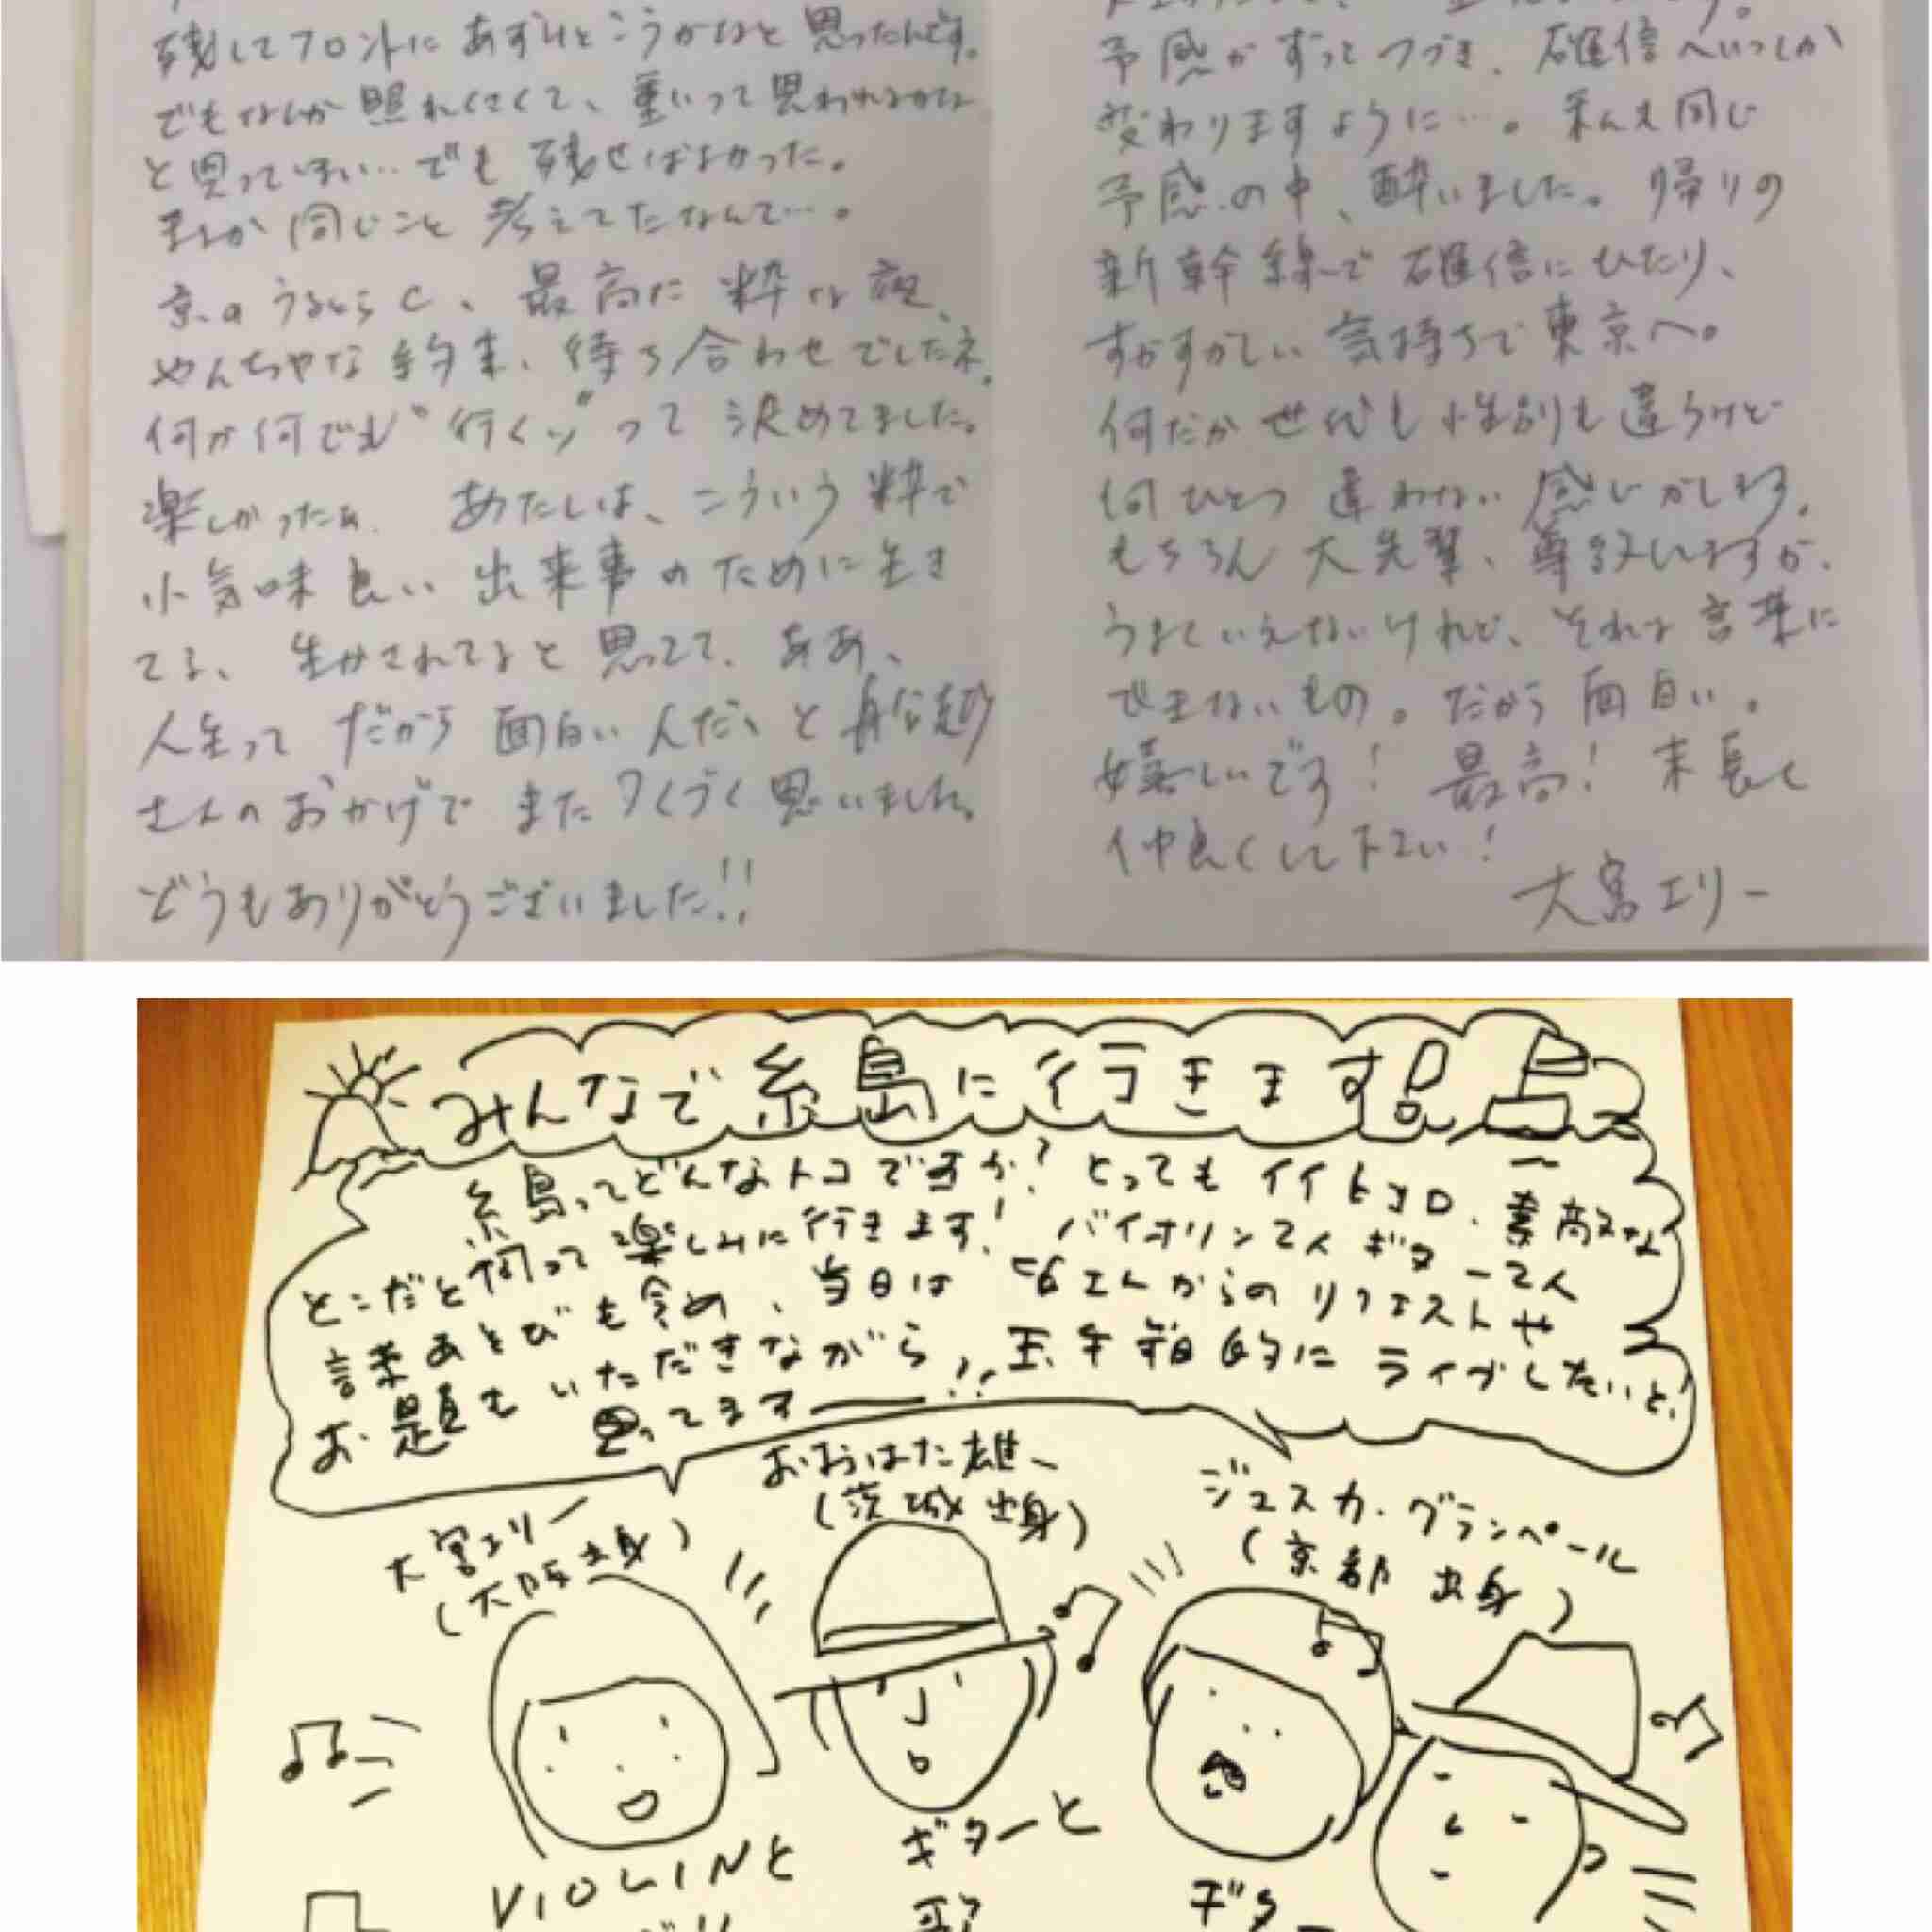 残してフロントにあずけとこうかなと思ったんです。
でもなんか照れくさくて、重いって思われるかな
と思ってしまい…でも残せばよかった。
まさか同じこと考えてたなんて…。
京のうるとらC、最高に粋な夜、
やんちゃな約束、待ち合わせでしたネ。
何が何でも“行くッ”って決めてました。
楽しかったぁ。あたしは、こういう粋で
小気味良い出来事のために生き
てる、生かされてると思ってて、ああ、
人生ってだから面白いんだ、と船越
さんのおかげでまたつくづく思いました。
どうもありがとうございました!!
予感がずっとつづき、確信へいつしか
変わりますように…。私も同じ
予感の中、酔いました。帰りの
新幹線で確信にひたり、
すがすがしい気持ちで東京へ。
何だか世代も性別も違うけど
何ひとつ違わない感じがします。
もちろん大先輩、尊敬しますが、
うまくいえないけれど、それは言葉に
できないもの。だから面白い。
嬉しいです!最高!末長く
仲良くして下さい!
大宮エリー
みんなで糸島に行きます!
糸島ってどんなトコですか?とってもイイトコロ、素敵な
とこだと伺って楽しみに行きます!バイオリン2人ギター2人
言葉あそびも含め、当日は皆さんからのリクエストや
お題をいただきながら!!玉手箱的にライブしたいと!
思ってますー
おおはた雄一
(茨城出身)
ジュスカ・グランペール
(京都出身)
大宮エリー
(大阪出身)
VIOLINと
ギターと
歌
ギター